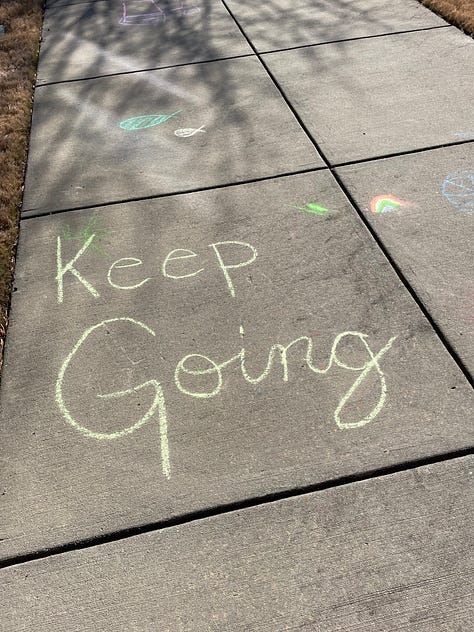 Keep
Going